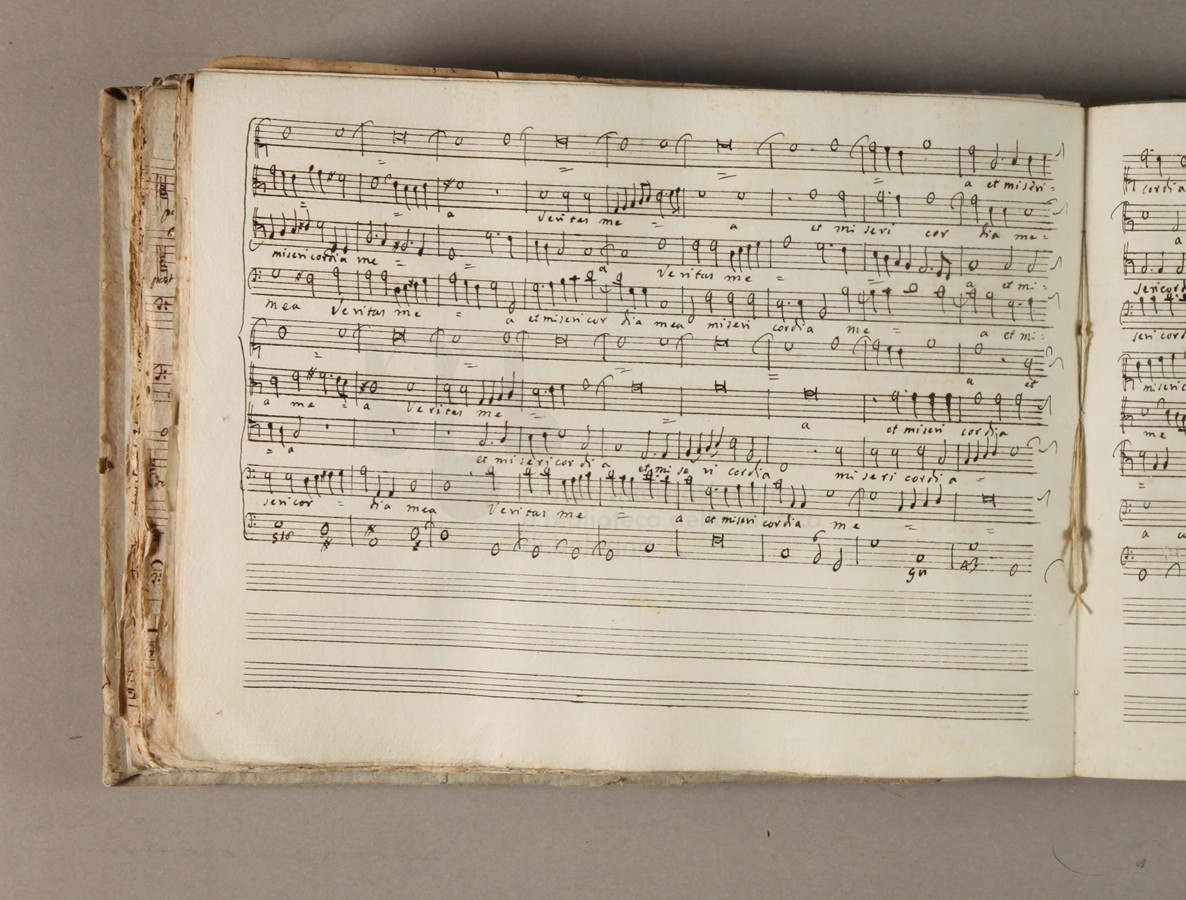 = = = a et miseri =
= = a veritas me = a et mi seri cor dia me =
misericordia me = = a veritas me = = a et mi =
mea veritas me = a et misericor dia mea miseri cordia me = a et mi =
= = = = a et
a me = a veritas me = = a et miseri cordia
= a et misericordi a et mi se ri cordia miseri cordia =
sericor = dia mea veritas me = a et miseri cordia me = =
cordia
a
sericord
seri cord
miseric
me =
=
a